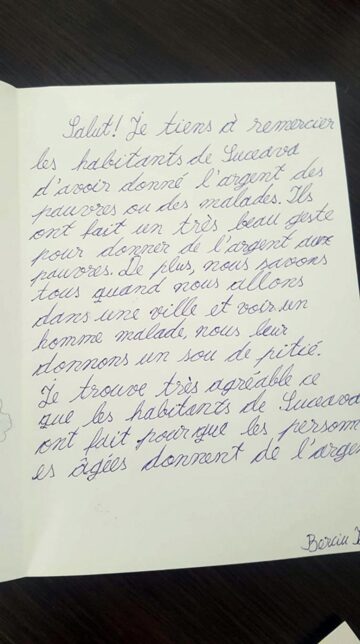 Salut! Je tiens à remercier
les habitants de Suceava
d'avoir donné l'argent des
pauvres ou des malades. Ils
ont fait un très beau geste
pour donner de l'argent aux
pauvres. De plus, nous savons
tous quand nous allons
dans une ville et voir un
homme malade, nous leur
donnons un sou de pitié.
Je trouve très agréable ce
que les habitants de Suceava
ont fait pour que les personn
es âgées donnent de l'argen